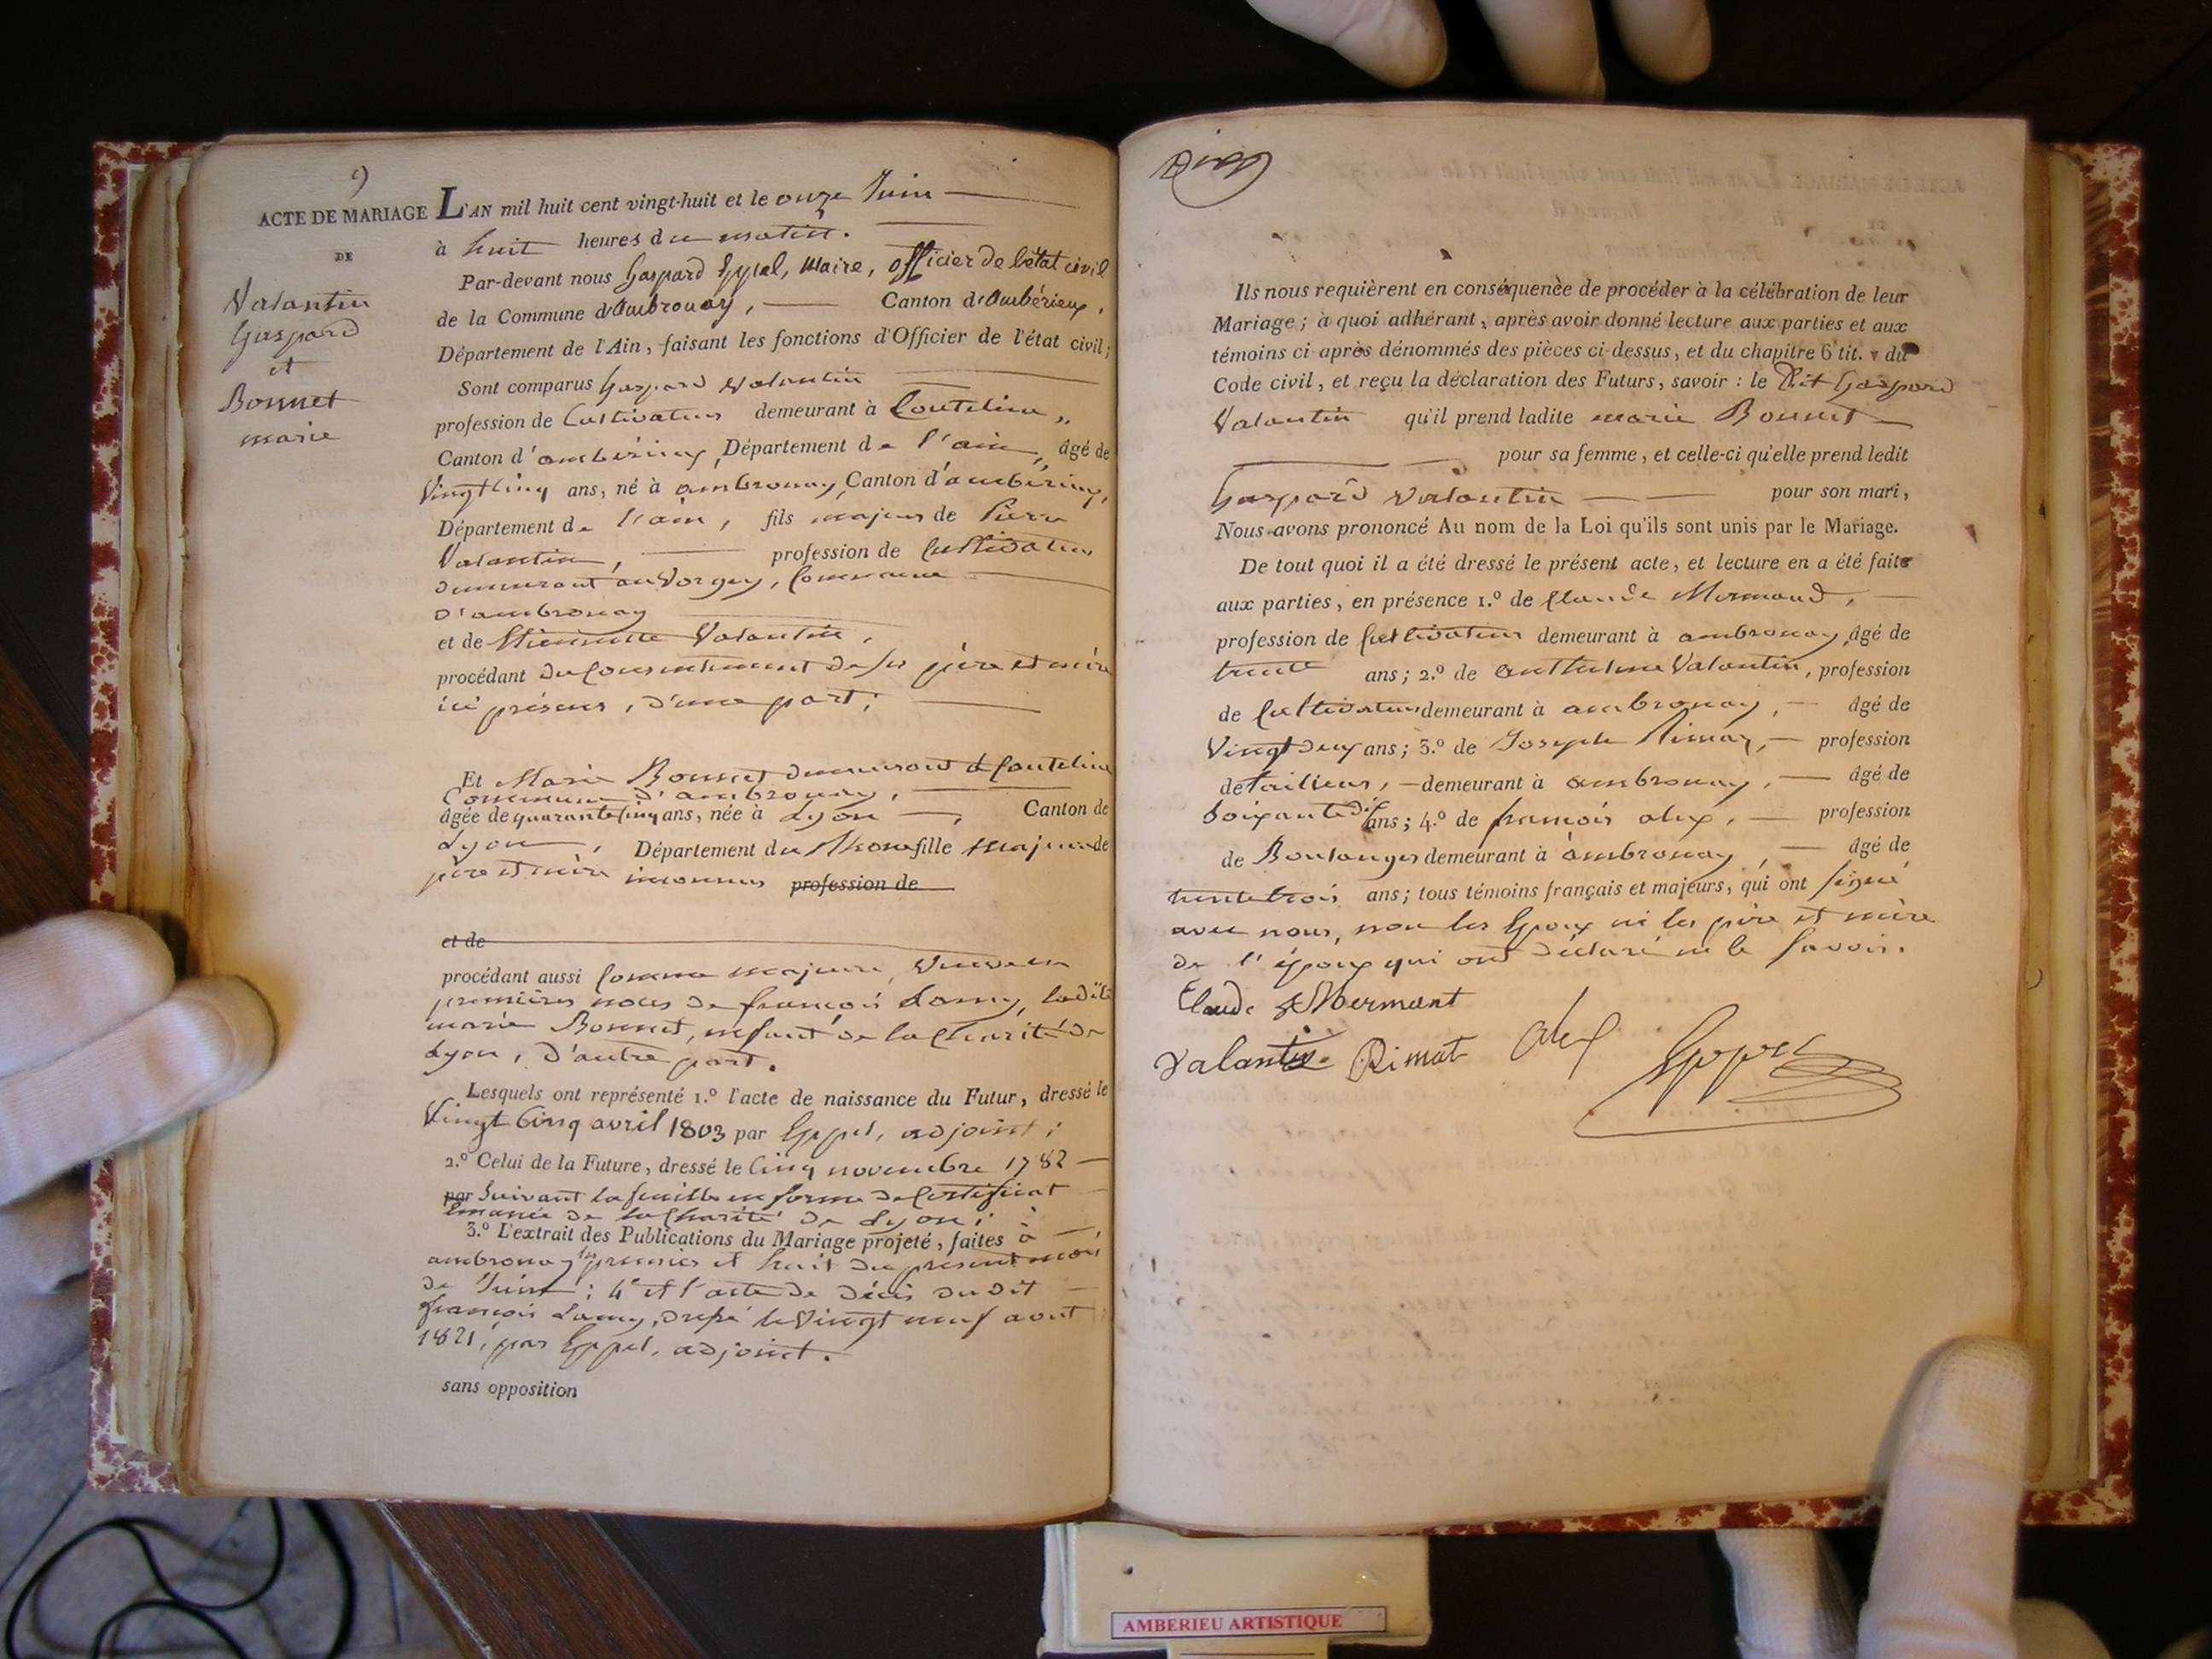 9
ACTE DE MARIAGE
DE
Valantin
Gaspard
et
Bonnet
marie
L'AN mil huit cent vingt-huit et le onze Juin
à huit heures du matin.
Par-devant nous Gaspard Eppel, Maire, officier de l'état civil
de la Commune d'Ambronay, Canton d'Ambérieux,
Département de l'Ain, faisant les fonctions d'Officier de l'état civil;
Sont comparus Gaspard Valantin
profession de Cultivateur demeurant à Couteline,
Canton d'ambérieux, Département de l'ain, âgé de
Vingt Cinq ans, né à ambronay, Canton d'ambérieux,
Département de l'ain, fils majeur de Pierre
Valantin, profession de Cultivateur
demeurant au Vorgey, Commune
d'ambronay
et de Etiennette Valantin,
procédant du Consentement de ses père et mère
ici présens, d'une part;
Et Marie Bonnet demeurant à Couteline
Commune d'ambronay,
âgée de quarante Cinq ans, née à Lyon, Canton de
Lyon, Département du Rhone fille majeure de
père et mère inconnus profession de
et de
procédant aussi Comme majeure, Veuve en
premières noces de françois Lamy, ladite
marie Bonnet, enfant de la Charité de
Lyon, d'autre part.
Lesquels ont représenté 1.º l'acte de naissance du Futur, dressé le
Vingt Cinq avril 1803 par Eppel, adjoint;
2.º Celui de la Future, dressé le Cinq novembre 1782
par Suivant la feuille en forme de Certificat
émanée de la Charité de Lyon;
3.º L'extrait des Publications du Mariage projeté, faites à
ambronay les premier et huit du présent mois
de Juin; 4º et l'acte de décès dudit
françois Lamy, dressé le Vingt neuf aout
1821, par Eppel, adjoint.
sans opposition
Ils nous requièrent en conséquence de procéder à la célébration de leur
Mariage; à quoi adhérant, après avoir donné lecture aux parties et aux
témoins ci-après dénommés des pièces ci-dessus, et du chapitre 6 tit. v du
Code civil, et reçu la déclaration des Futurs, savoir : le Dit Gaspard
Valantin qu'il prend ladite marie Bonnet
pour sa femme, et celle-ci qu'elle prend ledit
Gaspard Valantin pour son mari,
Nous avons prononcé Au nom de la Loi qu'ils sont unis par le Mariage.
De tout quoi il a été dressé le présent acte, et lecture en a été faite
aux parties, en présence 1.º de Claude Mermand,
profession de Cultivateur demeurant à ambronay, âgé de
trente ans; 2.º de Anthelme Valantin, profession
de Cultivateur demeurant à ambronay, âgé de
Vingt deux ans; 3.º de Joseph Rimaz, profession
de tailleur, demeurant à ambronay, âgé de
Soixante dix ans; 4.º de françois alex, profession
de Boulanger demeurant à ambronay, âgé de
trente trois ans; tous témoins français et majeurs, qui ont signé
avec nous, non les Epoux ni les père et mère
de l'époux qui ont déclaré ne le savoir.
Claude Mermant
Valantin Rimat Alex Eppel
AMBERIEU ARTISTIQUE